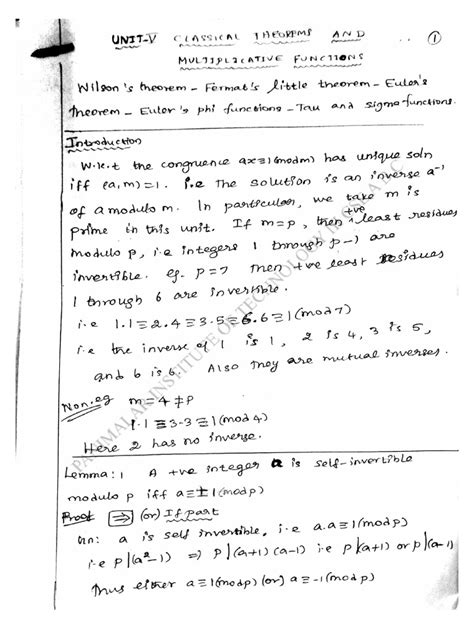 UNIT-V CLASSICAL THEOREMS AND
MULTIPLICATIVE FUNCTIONS
①
Wilson's theorem - Fermat's little theorem - Euler's
theorem - Euler's phi functions - Tau and sigma functions.
Introduction
W.k.t the congruence ax≡1(modm) has unique soln
iff (a,m)=1. i.e The solution is an inverse a⁻¹
of a modulo m. In particular, we take m is
prime in this unit. If m=p, then +ve least residues
modulo p, i.e integers 1 through p-1 are
invertible. eg. p=7 Then +ve least residues
1 through 6 are invertible.
i.e 1.1≡2.4≡3.5≡6.6≡1(mod7)
i.e the inverse of 1 is 1, 2 is 4, 3 is 5,
and 6 is 6. Also they are mutual inverses.
Non.eg m=4≠p
1.1≡3.3≡1(mod4)
Here 2 has no inverse.
Lemma:1 A +ve integer a is self-invertible
modulo p iff a≡±1(modp)
Proof ⇒ (or) If part
Gn: a is self invertible, i.e a.a≡1(modp)
i.e p|(a²-1) ⇒ p|(a+1)(a-1) i.e p|(a+1) or p|(a-1)
Thus either a≡1(modp) (or) a≡-1(modp)
INSTITUTE OF TECHNOLOGY